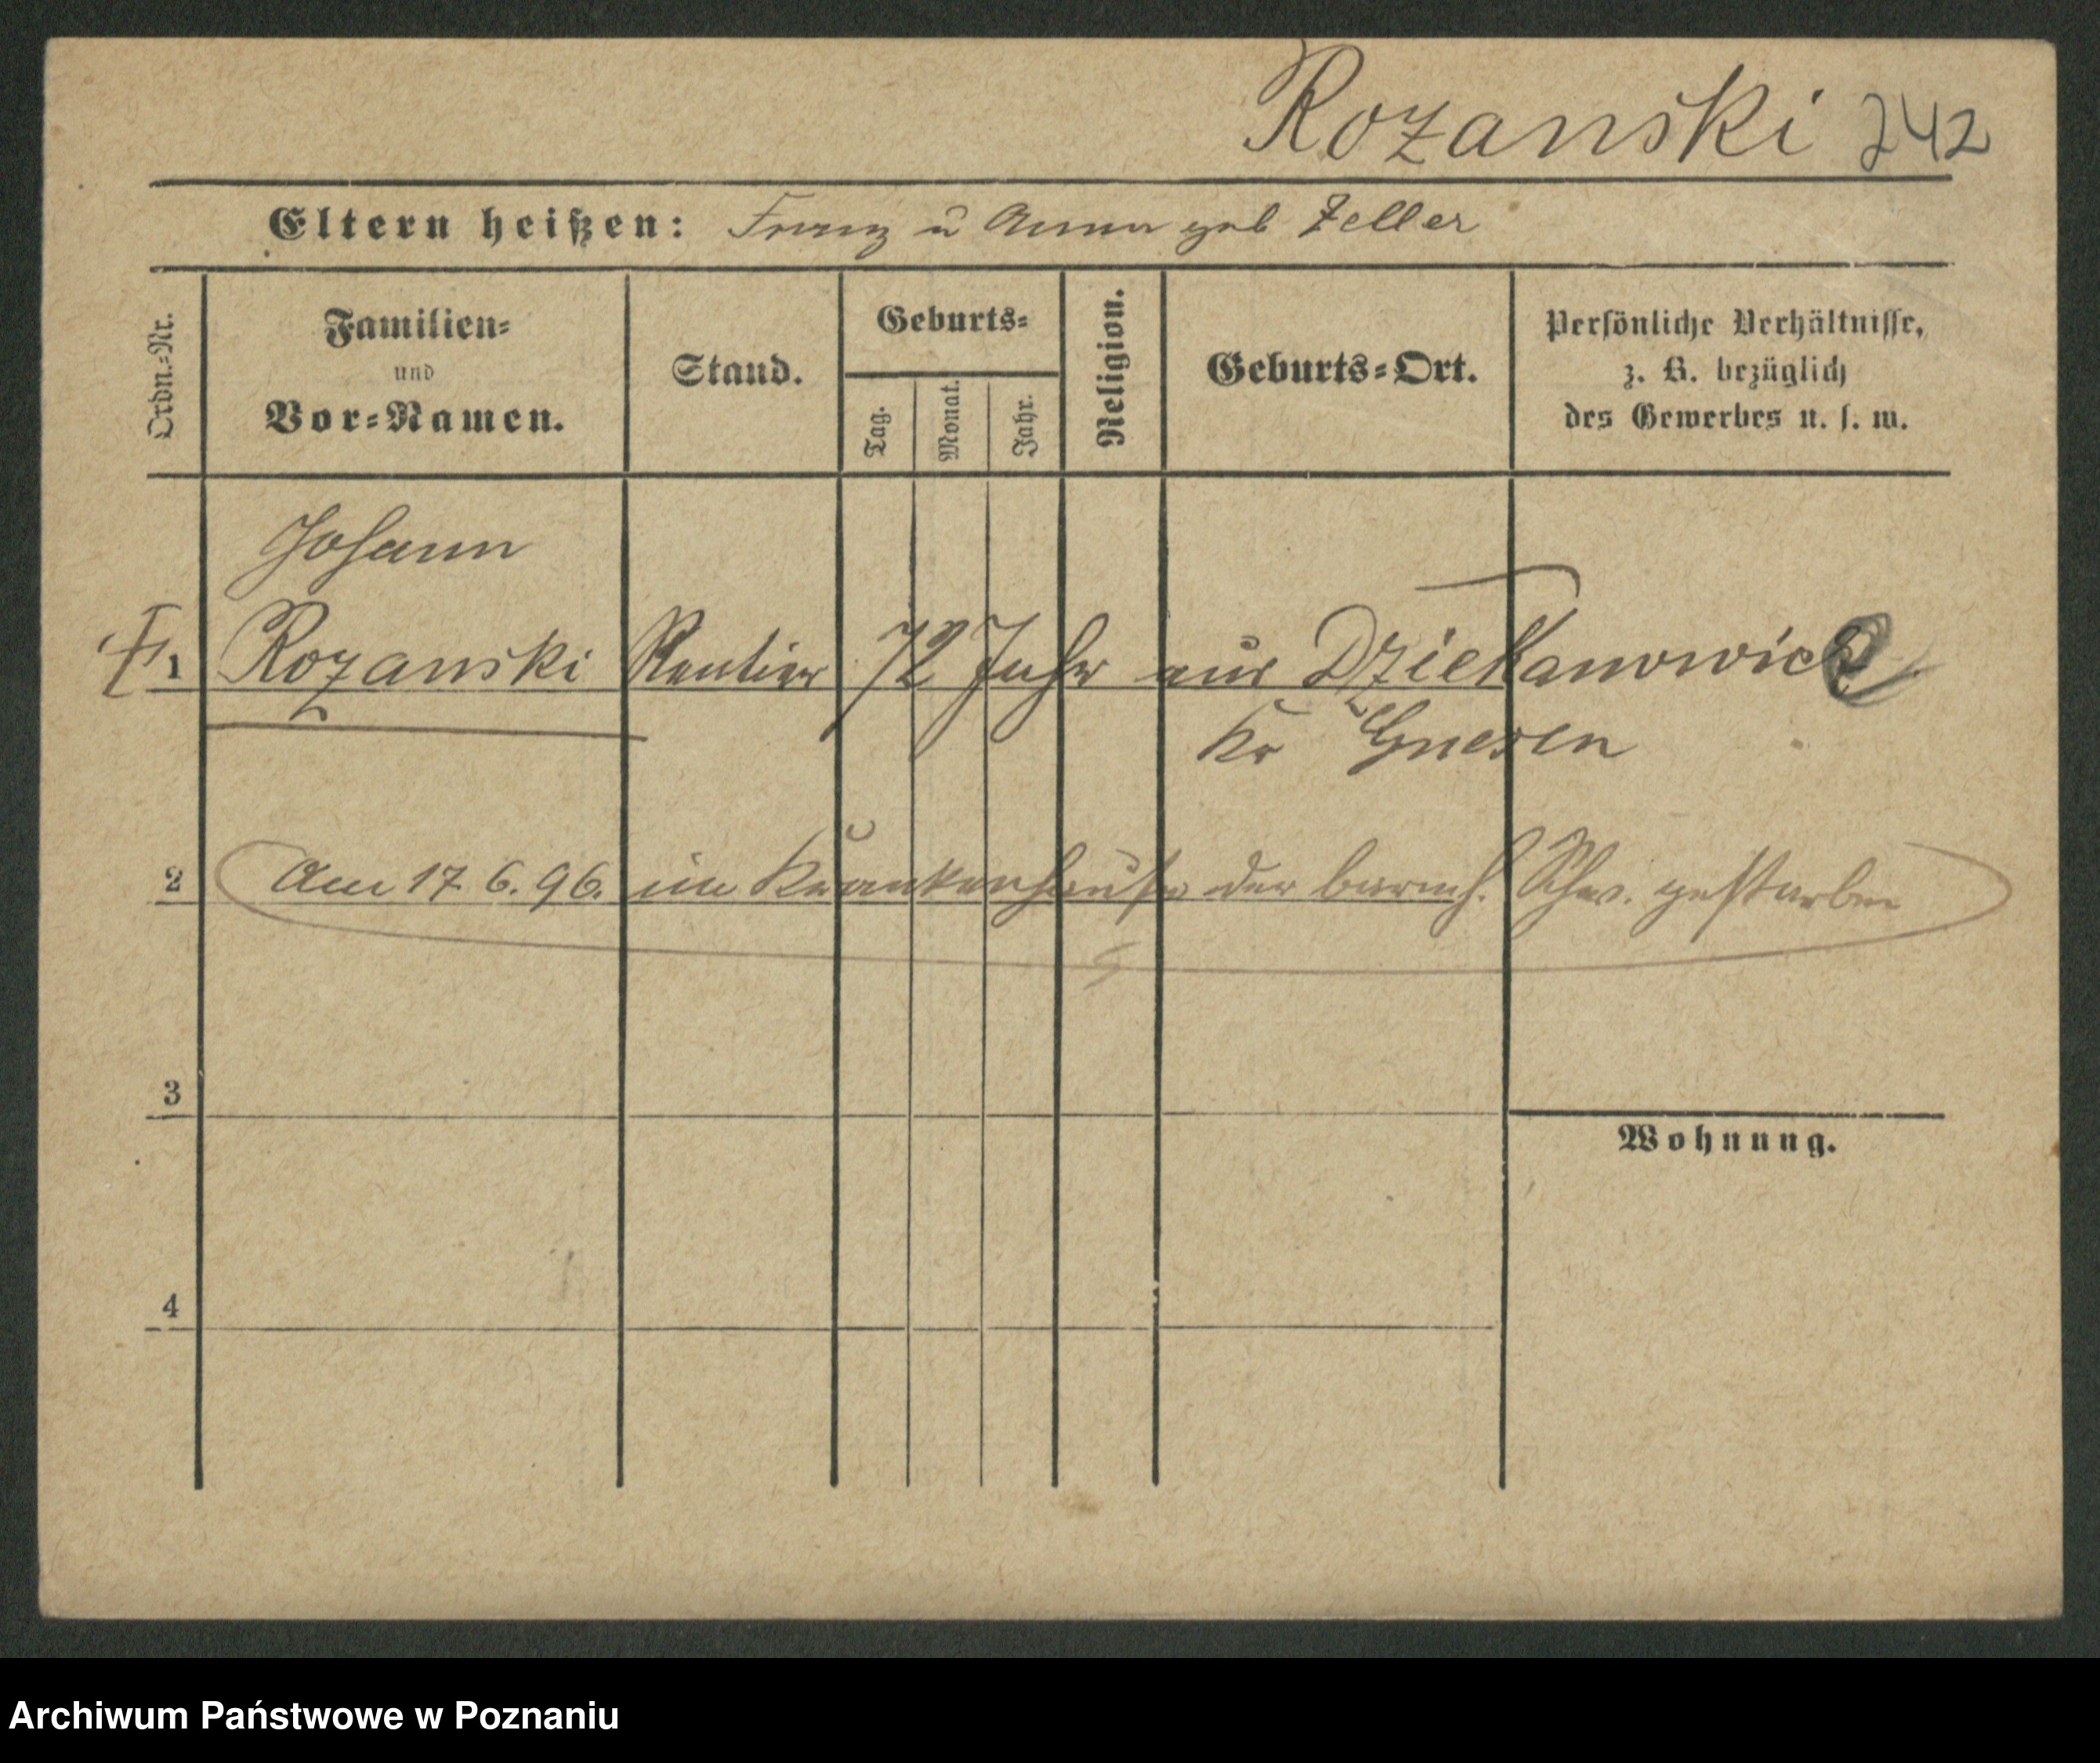 Rozanski 242
Eltern heißen: Franz u Anna geb Zeller
Ordn.=Nr.
Familien=
und
Vor=Namen.
Stand.
Geburts=
Tag.
Monat.
Jahr.
Religion.
Geburts=Ort.
Persönliche Verhältnisse,
z. B. bezüglich
des Gewerbes u. s. w.
Johann
1 Rozanski Rentier 72 Jahr aus Dziekanowice
Kr Gnesen
2 Am 17. 6. 96. im Krankenhause der barmh. Schw. gestorben
3
Wohnung.
4
Archiwum Państwowe w Poznaniu